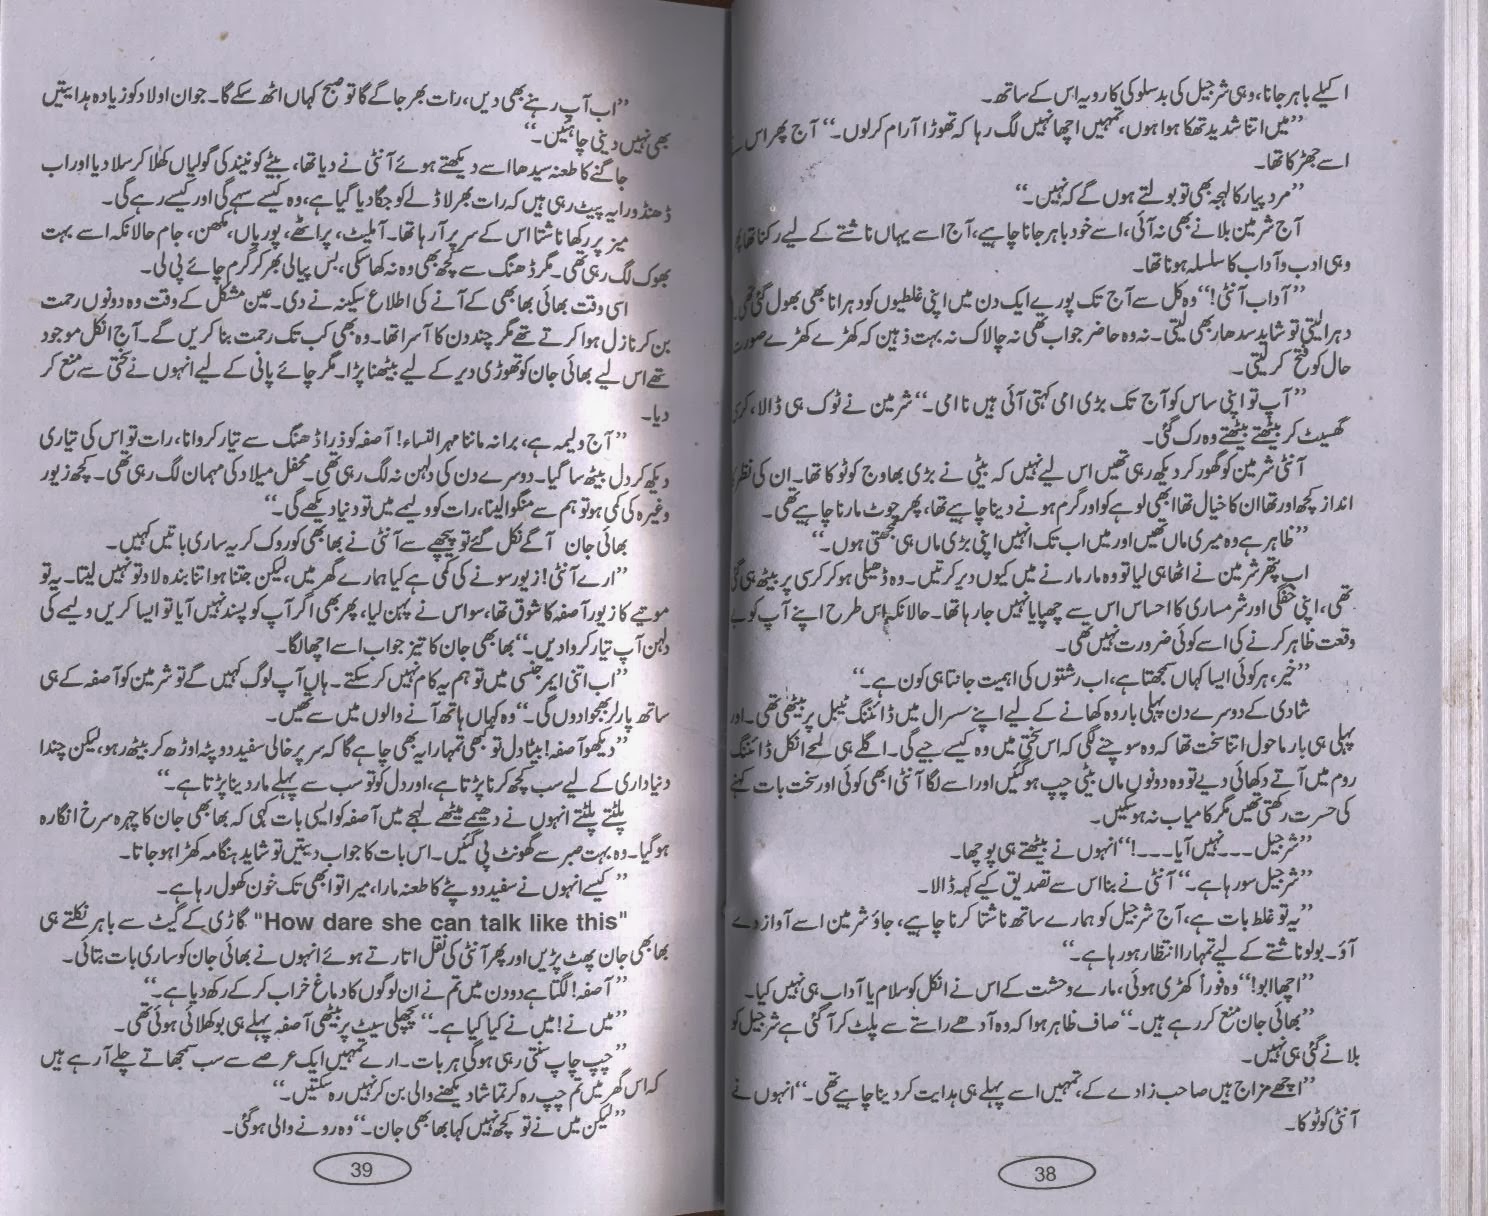 اکیلے باہر جانا، وہی شرجیل کی بدسلوکی کا رویہ اس کے ساتھ۔
’’میں اتنا شدید تھکا ہوا ہوں، تمہیں اچھا نہیں لگ رہا کہ تھوڑا آرام کرلوں۔‘‘ آج پھر اس نے
اسے جھڑکا تھا۔
’’مرد پیار کا لہجہ بھی تو بولتے ہوں گے کہ نہیں۔‘‘
آج شرمین بلانے بھی نہ آئی، اسے خود باہر جانا چاہیے، آج اسے یہاں ناشتے کے لیے رکنا تھا
وہی ادب و آداب کا سلسلہ ہونا تھا۔
’’آداب آنٹی!‘‘ وہ کل سے آج تک پورے ایک دن میں اپنی غلطیوں کو دہرانا بھی بھول گئی تھی۔
دہرا لیتی تو شاید سدھار بھی لیتی۔ نہ وہ حاضر جواب تھی نہ چالاک نہ بہت ذہین کہ کھڑے کھڑے صورت
حال کو فتح کرلیتی۔
’’آپ تو اپنی ساس کو آج تک بڑی امی کہتی آئی ہیں نا امی۔‘‘ شرمین نے ٹوک ہی ڈالا، کرسی
گھسیٹ کر بیٹھتے بیٹھتے وہ رک گئی۔
آنٹی شرمین کو گھور کر دیکھ رہی تھیں اس لیے نہیں کہ بیٹی نے بڑی بھاوج کو ٹوکا تھا۔ ان کی نظر کا
انداز کچھ اور تھا ان کا خیال تھا ابھی لوہے کو اور گرم ہونے دینا چاہیے تھا، پھر چوٹ مارنا چاہیے تھی۔
’’ظاہر ہے وہ میری ماں تھیں اور میں اب تک انہیں اپنی بڑی ماں ہی سمجھتی ہوں۔‘‘
اب پتھر شرمین نے اٹھا ہی لیا تو وہ مار مارنے میں کیوں دیر کرتیں۔ وہ ڈھیلی ہو کر کرسی پر بیٹھ ہی گئی
تھی، اپنی خفگی اور شرمساری کا احساس اس سے چھپایا نہیں جا رہا تھا۔ حالانکہ اس طرح اپنے آپ کو بے
وقعت ظاہر کرنے کی اسے کوئی ضرورت نہیں تھی۔
’’خیر، ہر کوئی ایسا کہاں سمجھتا ہے، اب رشتوں کی اہمیت جانتا ہی کون ہے۔‘‘
شادی کے دوسرے دن پہلی بار وہ کھانے کے لیے اپنے سسرال میں ڈائننگ ٹیبل پر بیٹھی تھی۔ اور
پہلی ہی بار ماحول اتنا سخت تھا کہ وہ سوچنے لگی کہ اس سختی میں وہ کیسے جیے گی۔ اگلے ہی لمحے انکل ڈائننگ
روم میں آتے دکھائی دیے تو وہ دونوں ماں بیٹی چپ ہو گئیں اور اسے لگا آنٹی ابھی کوئی اور سخت بات کہنے
کی حسرت رکھتی تھیں مگر کامیاب نہ ہوسکیں۔
’’شرجیل ۔۔۔ نہیں آیا ۔۔۔!‘‘ انہوں نے بیٹھتے ہی پوچھا۔
’’شرجیل سو رہا ہے۔‘‘ آنٹی نے بنا اس سے تصدیق کیے کہہ ڈالا۔
’’یہ تو غلط بات ہے، آج شرجیل کو ہمارے ساتھ ناشتا کرنا چاہیے، جاؤ شرمین اسے آواز دے
آؤ۔ بولو ناشتے کے لیے تمہارا انتظار ہو رہا ہے۔‘‘
’’اچھا ابو!‘‘ وہ فوراً کھڑی ہوئی، مارے وحشت کے اس نے انکل کو سلام یا آداب ہی نہیں کیا۔
’’بھائی جان منع کر رہے ہیں۔‘‘ صاف ظاہر ہوا کہ وہ آدھے راستے سے پلٹ کر آ گئی ہے شرجیل کو
بلانے گئی ہی نہیں۔
’’اچھے مزاج ہیں صاحب زادے کے، تمہیں اسے پہلے ہی ہدایت کر دینا چاہیے تھی۔‘‘ انہوں نے
آنٹی کو ٹوکا۔
38
’’اب آپ رہنے بھی دیں، رات بھر جاگے گا تو صبح کہاں اٹھ سکے گا۔ جوان اولاد کو زیادہ ہدایتیں
بھی نہیں دینی چاہئیں۔‘‘
جاگنے کا طعنہ سیدھا اسے دیکھتے ہوئے آنٹی نے دیا تھا، بیٹے کو نیند کی گولیاں کھلا کر سلا دیا اور اب
ڈھنڈورا یہ پیٹ رہی ہیں کہ رات بھر لاڈلے کو جگا دیا گیا ہے، وہ کیسے سہے گی اور کیسے رہے گی۔
میز پر رکھا ناشتا اس کے سر پر آ رہا تھا۔ آملیٹ، پراٹھے، پوریاں، مکھن، جام حالانکہ اسے بہت
بھوک لگ رہی تھی۔ مگر ڈھنگ سے کچھ بھی وہ نہ کھا سکی، بس پیالی بھر کر گرم چائے پی لی۔
اسی وقت بھائی بھابھی کے آنے کی اطلاع سکینہ نے دی۔ عین مشکل کے وقت وہ دونوں رحمت
بن کر نازل ہوا کرتے تھے مگر چند دن کا آسرا تھا۔ وہ بھی کب تک رحمت بنا کریں گے۔ آج انکل موجود
تھے اس لیے بھائی جان کو تھوڑی دیر کے لیے بیٹھنا پڑا۔ مگر چائے پانی کے لیے انہوں نے سختی سے منع کر
دیا۔
’’آج ولیمہ ہے، برا نہ ماننا مہر النساء! آصفہ کو ذرا ڈھنگ سے تیار کروانا، رات تو اس کی تیاری
دیکھ کر دل بیٹھ سا گیا۔ دوسرے دن کی دلہن نہ لگ رہی تھی۔ محفل میلاد کی مہمان لگ رہی تھی۔ کچھ زیور
وغیرہ کی کمی ہو تو ہم سے منگوا لینا، رات کو ولیمے میں تو دنیا دیکھے گی۔‘‘
بھائی جان آگے نکل گئے تو پیچھے سے آنٹی نے بھابھی کو روک کر یہ ساری باتیں کہیں۔
’’ارے آنٹی! زیور سونے کی کمی ہے کیا ہمارے گھر میں، لیکن جتنا ہو اتنا بندہ لاد تو نہیں لیتا۔ یہ تو
موتیے کا زیور آصفہ کا شوق تھا، سو اس نے پہن لیا، پھر بھی اگر آپ کو پسند نہیں آیا تو ایسا کریں ولیمے کی
دلہن آپ تیار کروا دیں۔‘‘ بھابھی جان کا تیز جواب اسے اچھا لگا۔
’’اب اتنی ایمرجنسی میں تو ہم یہ کام نہیں کرسکتے۔ ہاں آپ لوگ کہیں گے تو شرمین کو آصفہ کے ہی
ساتھ پارلر بھجوا دوں گی۔‘‘ وہ کہاں ہاتھ آنے والوں میں سے تھیں۔
’’دیکھو آصفہ! بیٹا دل تو بھی تمہارا یہ بھی چاہے گا کہ سر پر خالی سفید دوپٹہ اوڑھ کر بیٹھ رہو، لیکن چندا
دنیا داری کے لیے سب کچھ کرنا پڑتا ہے، اور دل کو تو سب سے پہلے مار دینا پڑتا ہے۔‘‘
پلٹتے پلٹتے انہوں نے دھیمے میٹھے لہجے میں آصفہ کو ایسی بات کہی کہ بھابھی جان کا چہرہ سرخ انگارہ
ہو گیا۔ وہ بہت صبر سے گھونٹ پی گئیں۔ اس بات کا جواب دیتیں تو شاید ہنگامہ کھڑا ہو جاتا۔
’’کیسے انہوں نے سفید دوپٹے کا طعنہ مارا، میرا تو ابھی تک خون کھول رہا ہے۔
"How dare she can talk like this" گاڑی کے گیٹ سے باہر نکلتے ہی
بھابھی جان پھٹ پڑیں اور پھر آنٹی کی نقل اتارتے ہوئے انہوں نے بھائی جان کو ساری بات بتائی۔
’’آصفہ! لگتا ہے دو دن میں تم نے ان لوگوں کا دماغ خراب کر کے رکھ دیا ہے۔‘‘
’’میں نے! میں نے کیا کیا ہے۔‘‘ پچھلی سیٹ پر بیٹھی آصفہ پہلے ہی بوکھلائی ہوئی تھی۔
’’چپ چاپ سنتی رہی ہوگی ہر بات۔ ارے تمہیں ایک عرصے سے سب سمجھاتے چلے آ رہے ہیں
کہ اس گھر میں تم چپ رہ کر تماشا دیکھنے والی بن کر نہیں رہ سکتیں۔‘‘
’’لیکن میں نے تو کچھ نہیں کہا بھابھی جان۔‘‘ وہ رونے والی ہو گئی۔
39